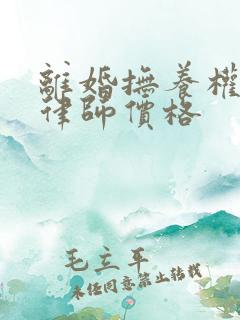 離婚撫養權
律師價格
毛立平
未經同意禁止转載